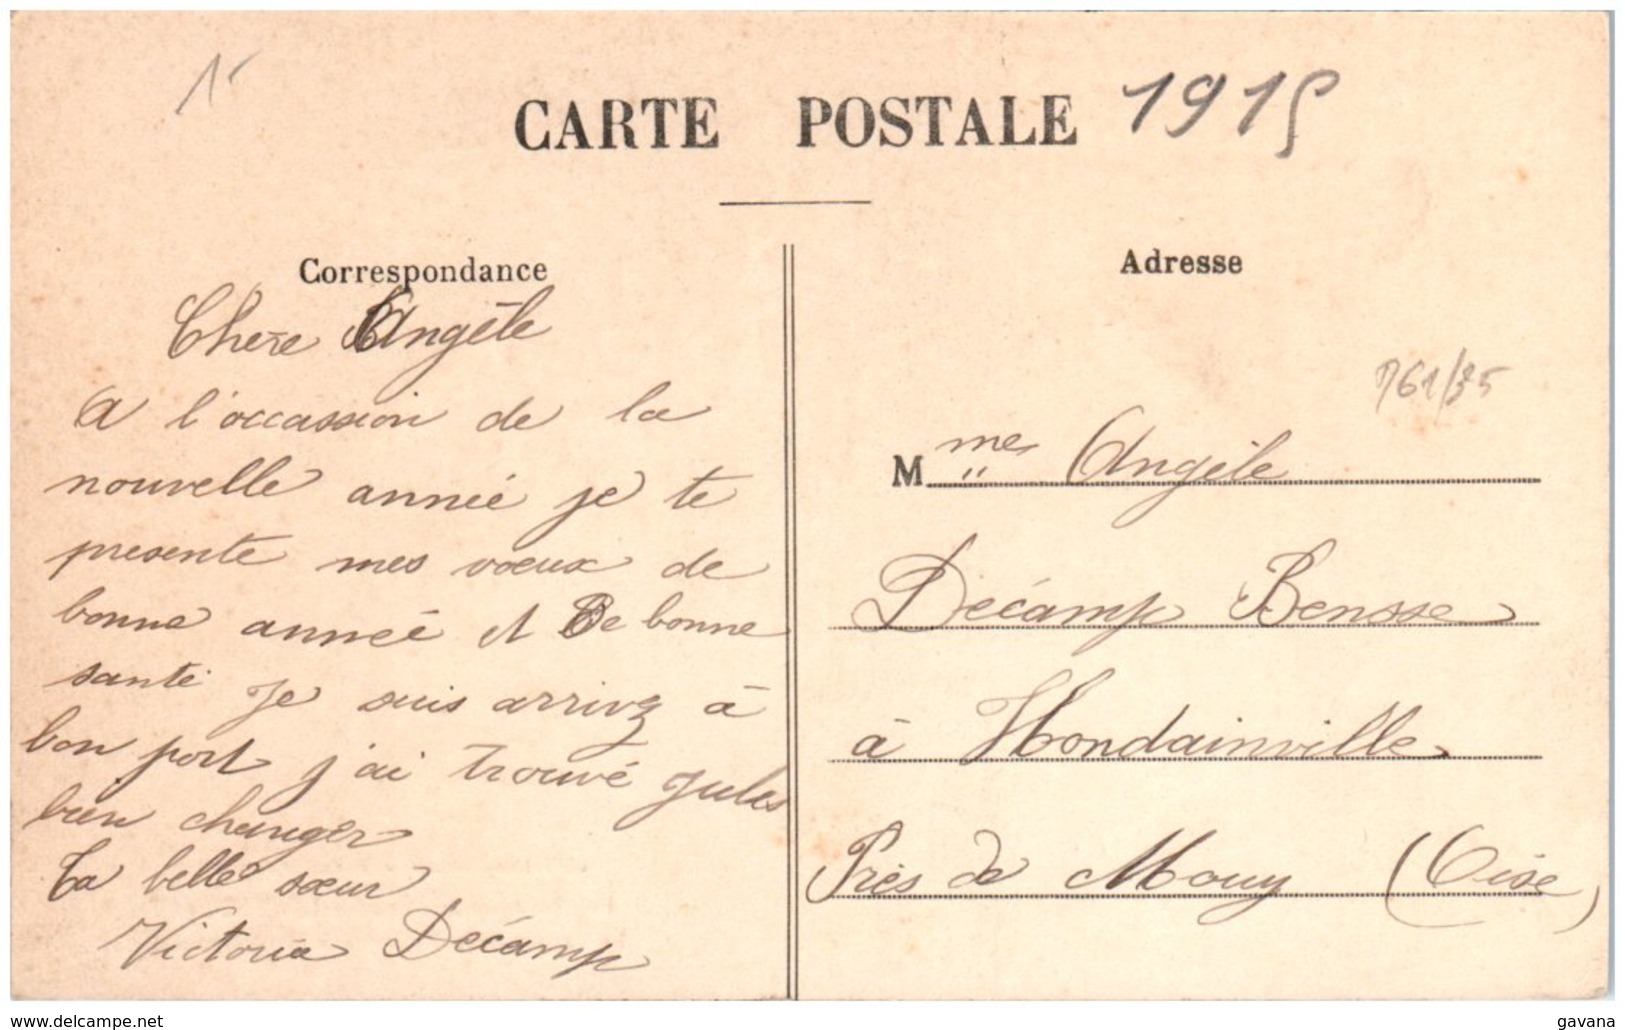 1
CARTE POSTALE 1915
Correspondance
Adresse
Chere Angéle
A l'occassion de la
nouvelle année je te
presente mes voeux de
bonne année et De bonne
santé Je suis arrivez à
bon port j'ai trouvé Jules
bien changer
Ta belle soeur
Victoria Décamp
761/35
Mme Angéle
Décamp Bensse
à Hondainville
Près de Mouy (Oise)
www.delcampe.net
gavana